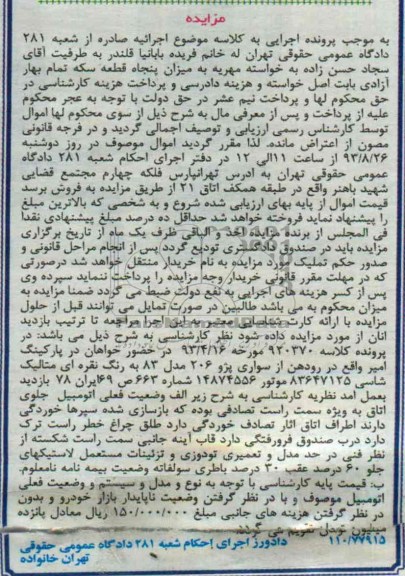 مزایده
به موجب پرونده اجرایی به کلاسه موضوع اجرائیه صادره از شعبه ۲۸۱
دادگاه عمومی حقوقی تهران له خانم فریده بابانیا قلندر به طرفیت آقای
سجاد حسن زاده به خواسته مهریه به میزان پنجاه قطعه سکه تمام بهار
آزادی بابت اصل خواسته و هزینه دادرسی و پرداخت هزینه کارشناسی در
حق محکوم لها و پرداخت نیم عشر در حق دولت با توجه به عجز محکوم
علیه از پرداخت و پس از معرفی مال به شرح ذیل از سوی محکوم لها اموال
توسط کارشناس رسمی ارزیابی و توصیف اجمالی گردید و در فرجه قانونی
مصون از اعتراض مانده. لذا مقرر گردید اموال موصوف در روز دوشنبه
۹۳/۸/۲۶ از ساعت ۱۱الی ۱۲ در دفتر اجرای احکام شعبه ۲۸۱ دادگاه
عمومی حقوقی تهران به آدرس تهرانپارس فلکه چهارم مجتمع قضایی
شهید باهنر واقع در طبقه همکف اتاق ۲۱ از طریق مزایده به فروش برسد
قیمت اموال از پایه بهای ارزیابی شده شروع و به شخصی که بالاترین مبلغ
را پیشنهاد نماید فروخته خواهد شد حداقل ده درصد مبلغ پیشنهادی نقدا
فی المجلس از برنده مزایده اخذ و الباقی ظرف یک ماه از تاریخ برگزاری
مزایده باید در صندوق دادگستری تودیع گردد پس از انجام مراحل قانونی و
صدور حکم تملیک مورد مزایده به نام خریدار منتقل خواهد شد درصورتی
که در مهلت مقرر قانونی خریدار وجه مزایده را پرداخت ننماید سپرده وی
پس از کسر هزینه های اجرایی به نفع دولت ضبط می گردد ضمنا مزایده به
میزان محکوم به می باشد طالبین در صورت تمایل می توانند قبل از حلول
مزایده با ارائه کارت شناسایی معتبر به این اجرا مراجعه تا ترتیب بازدید
آنان از مورد مزایده داده شود نظر کارشناسی به شرح ذیل می باشد: در
پرونده کلاسه ۹۲۰۳۷۰ مورخه ۹۳/۴/۱۶ در حضور خواهان در پارکینگ
امیر واقع در رودهن از سواری پژو ۲۰۶ مدل ۸۳ به رنگ نقره ای متالیک
شاسی ۸۳۶۴۷۱۲۵ موتور ۱۴۸۷۴۵۵۶ شماره ۶۶۳ص۴۹ ایران ۷۸ بازدید
بعمل آمد نظریه کارشناسی به شرح زیر الف وضعیت فعلی اتومبیل جلوی
اتاق به ویژه سمت راست تصادفی بوده که بازسازی شده سپرها خوردگی
دارند اطراف اتاق آثار تصادف خوردگی دارد طلق چراغ خطر راست ترک
دارد درب صندوق فرورفتگی دارد قاب آینه جانبی سمت راست شکسته از
نظر فنی در حد مدل و تعمیری تودوزی و تزئینات مستعمل لاستیکهای
جلو ۶۰ درصد عقب ۳۰ درصد باطری سولفاته وضعیت بیمه نامه نامعلوم.
ب: قیمت پایه کارشناسی با توجه به نوع و مدل و سیستم و وضعیت فعلی
اتومبیل موصوف و با در نظر گرفتن وضعیت ناپایدار بازار خودرو و بدون
در نظر گرفتن هزینه های جانبی مبلغ ۱۵۰/۰۰۰/۰۰۰ ریال معادل پانزده
میلیون تومان تقویم می گردد.
۱۱۰/۷۷۹۱۵ دادورز اجرای احکام شعبه ۲۸۱ دادگاه عمومی حقوقی
تهران خانواده